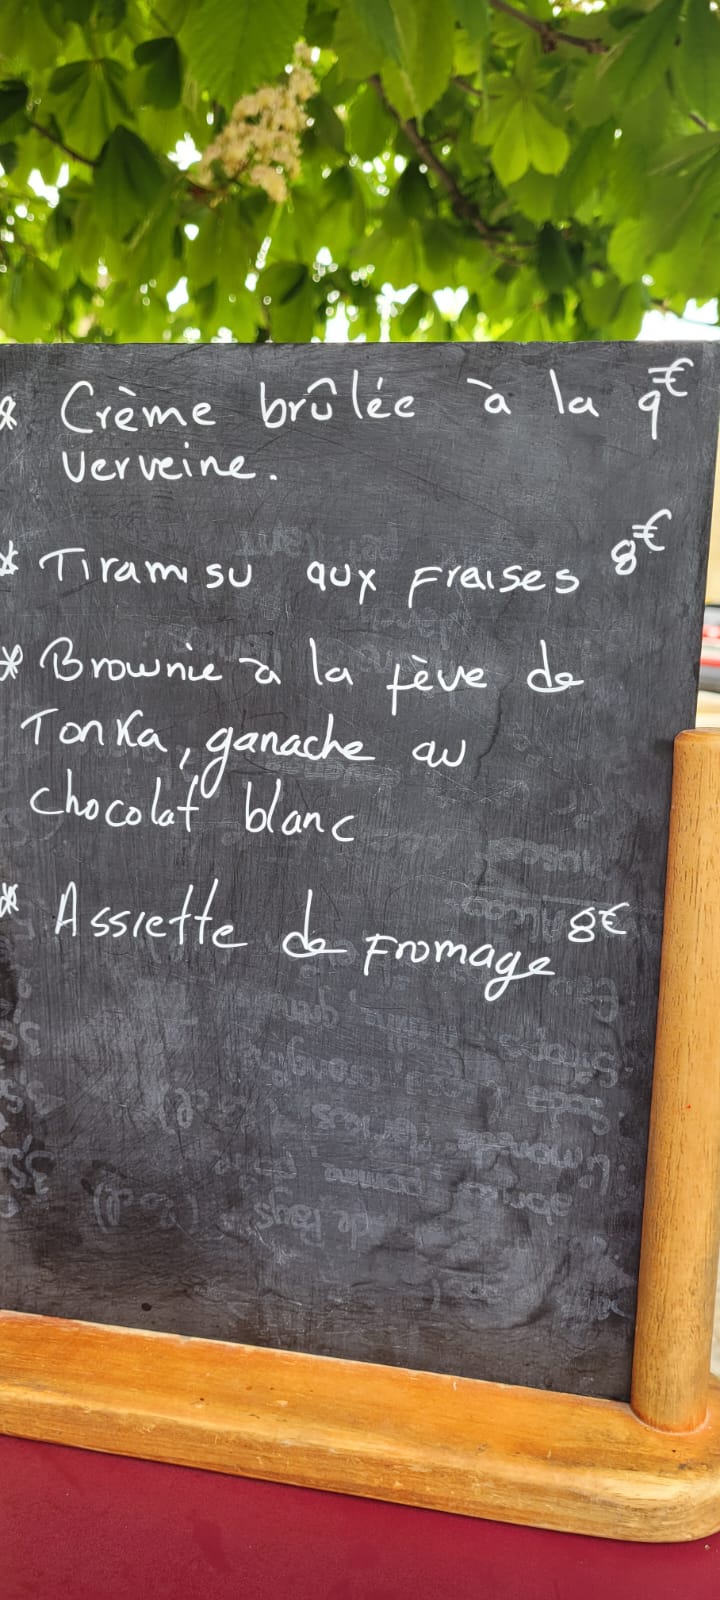 * Crème brûlée à la 9€
verveine.
* Tiramisu aux fraises 8€
* Brownie à la fève de
Tonka, ganache au
chocolat blanc
* Assiette de fromage 8€